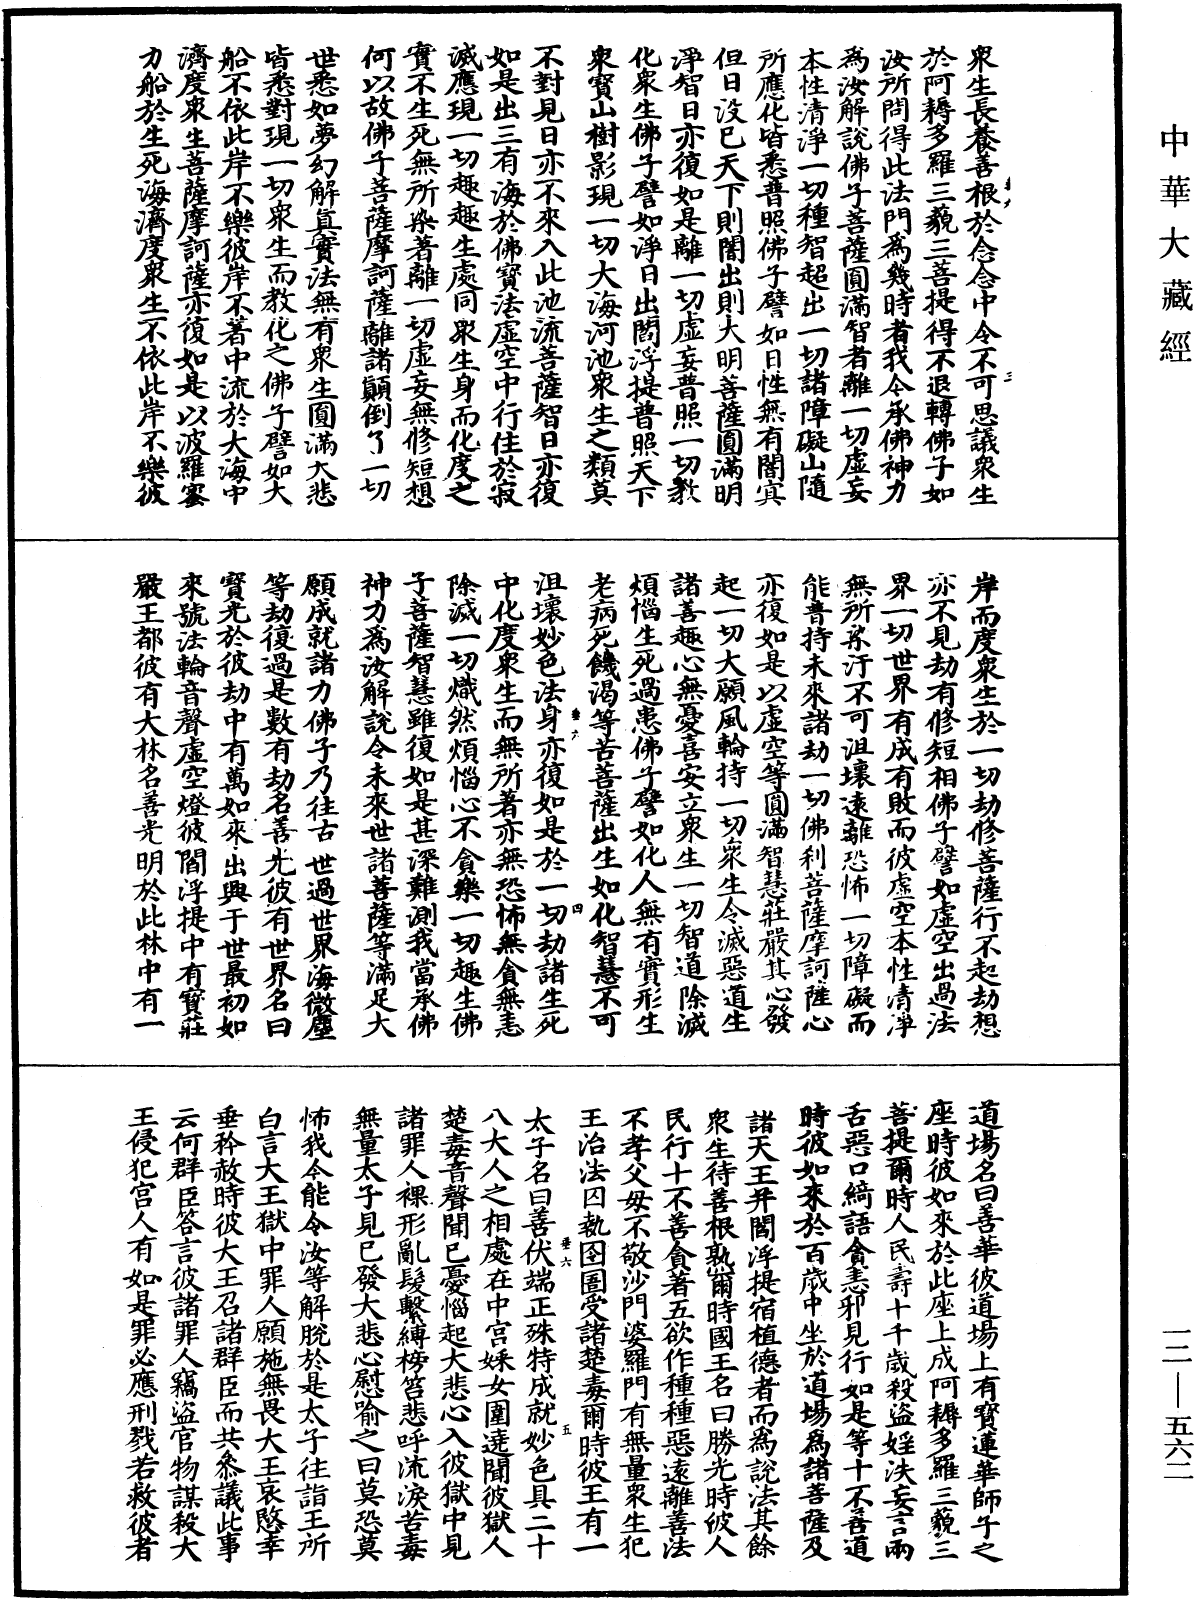 中華大藏經
衆生長養善根於念念中令不可思議衆生
於阿耨多羅三藐三菩提得不退轉佛子如
汝所問得此法門為幾時者我今承佛神力
為汝解說佛子菩薩圓滿智者離一切虛妄
本性清淨一切種智超出一切諸障礙山隨
所應化皆悉普照佛子譬如日性無有闇冥
但日没已天下則闇出則大明菩薩圓滿明
淨智日亦復如是離一切虛妄普照一切教
化衆生佛子譬如淨日出閻浮提普照天下
衆寶山樹影現一切大海河池衆生之類莫
不對見日亦不來入此池流菩薩智日亦復
如是出三有海於佛寶法虛空中行住於寂
滅應現一切趣趣生處同衆生身而化度之
實不生死無所染著離一切虛妄無修短想
何以故佛子菩薩摩訶薩離諸顛倒了一切
世悉如夢幻解真實法無有衆生圓滿大悲
皆悉對現一切衆生而教化之佛子譬如大
船不依此岸不樂彼岸不著中流於大海中
濟度衆生菩薩摩訶薩亦復如是以波羅蜜
力船於生死海濟度衆生不依此岸不樂彼
岸而度衆生於一切劫修菩薩行不起劫想
亦不見劫有修短相佛子譬如虛空出過法
界一切世界有成有敗而彼虛空本性清淨
無所染汙不可沮壞遠離恐怖一切障礙而
能普持未來諸劫一切佛刹菩薩摩訶薩心
亦復如是以虛空等圓滿智慧莊嚴其心發
起一切大願風輪持一切衆生令滅惡道生
諸善趣心無憂喜安立衆生一切智道除滅
煩惱生死過患佛子譬如化人無有實形生
老病死饑渴等苦菩薩出生如化智慧不可
沮壞妙色法身亦復如是於一切劫諸生死
中化度衆生而無所著亦無恐怖無貪無恚
除滅一切熾然煩惱心不貪樂一切趣生佛
子菩薩智慧雖復如是甚深難測我當承佛
神力為汝解說令未來世諸菩薩等滿足大
願成就諸力佛子乃往古世過世界海微塵
等劫復過是數有劫名善光彼有世界名曰
寶光於彼劫中有萬如來出興于世最初如
來號法輪音聲虛空燈彼閻浮提中有寶莊
嚴王都彼有大林名善光明於此林中有一
道場名曰善華彼道場上有寶蓮華師子之
座時彼如來於此座上成阿耨多羅三藐三
菩提爾時人民壽十千歲殺盜婬泆妄言兩
舌惡口綺語貪恚邪見行如是等十不善道
時彼如來於百歲中坐於道場為諸菩薩及
諸天王并閻浮提宿植德者而為說法其餘
衆生待善根熟爾時國王名曰勝光時彼人
民行十不善貪著五欲作種種惡遠離善法
不孝父母不敬沙門婆羅門有無量衆生犯
王治法囚執囹圄受諸楚毒爾時彼王有一
太子名曰善伏端正殊特成就妙色具二十
八大人之相處在中宮婇女圍遶聞彼獄人
楚毒音聲聞已憂惱起大悲心入彼獄中見
諸罪人裸形亂髮繫縛榜笞悲呼流淚苦毒
無量太子見已發大悲心慰喻之曰莫恐莫
怖我今能令汝等解脫於是太子往詣王所
白言大王獄中罪人願施無畏大王哀愍幸
垂矜赦時彼大王召諸群臣而共叅議此事
云何群臣答言彼諸罪人竊盜官物謀殺大
王侵犯宮人有如是罪必應刑戮若救彼者
三
垂六
四
垂六
五
一三—五六二